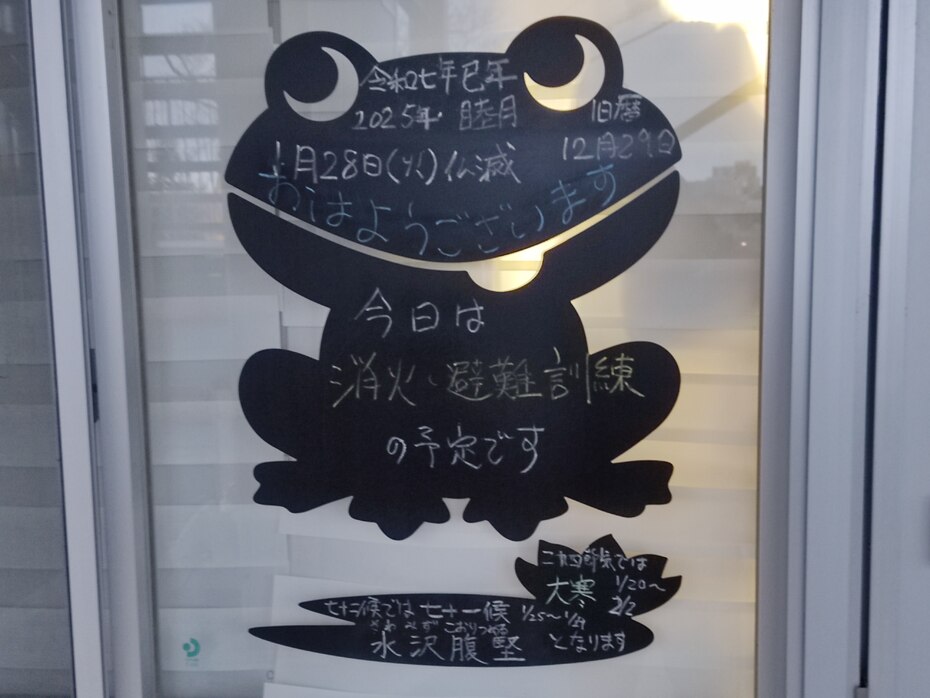 令和七年巳年
2025年 睦月
旧暦
1月28日(火)仏滅
12月29日
おはようございます
今日は
消火・避難訓練
の予定です
二十四節気では
大寒 1/20～
2/2
七十二候では七十一候 1/25～1/29
さわみずこおりつめる
水沢腹堅 となります